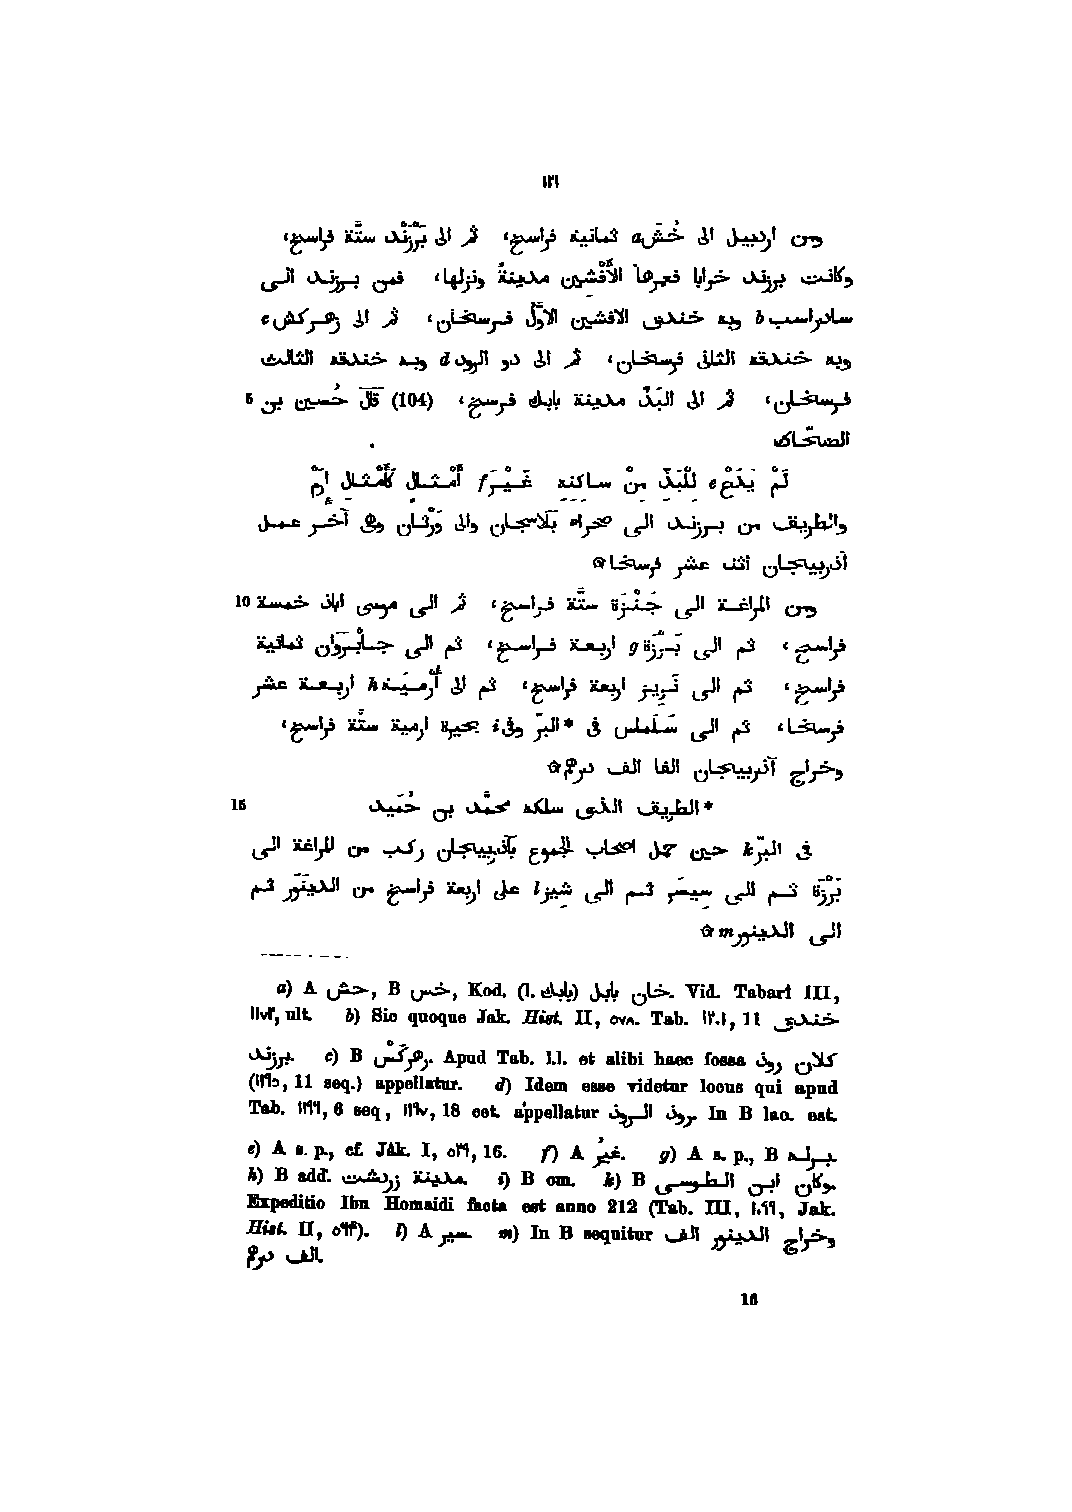 ١٢١
ومن اردبيل الى خُشّ a ثمانية فراسخ، ثم الى بَرْزَنْد ستّة فراسخ،
وكانت برزند خرابا فعمرها الأَفْشين مدينةً ونزلها، فمن برزند الى
سادراسب b وبه خندق الافشين الاوّل فرسخان، ثم الى زهركش c
وبه خندقه الثانى فرسخان، ثم الى دو الرود d وبه خندقه الثالث
فرسخان، ثم الى البَذّ مدينة بابك فرسخ، (104) قال حُسين بن 5
الضحّاك
لَمْ يَدَعْ e لِلْبَذِّ مِنْ ساكنِهِ غَيْرَ f أَمْثالٍ كَأَمْثالِ إِرَمْ
والطريق من برزند الى صحراء بَلاسجان والى وَرْثان وهى آخر عمل
آذربيجان اثنا عشر فرسخا ۞
ومن المراغة الى جَنْزَة ستّة فراسخ، ثم الى موسى اباذ خمسة 10
فراسخ، ثم الى بَرْزَة g اربعة فراسخ، ثم الى جابْرَوان ثمانية
فراسخ، ثم الى نَريز اربعة فراسخ، ثم الى أُرْمِيَة h اربعة عشر
فرسخا، ثم الى سَلَماس فى *البرّ وفى i بحيرة ارمية ستّة فراسخ،
وخراج آذربيجان الفا الف درهم ۞
*الطريق الذى سلكه محمَّد بن حُمَيد 15
فى البرّ k حين حمل اصحاب الجموع بآذربيجان ركب من المراغة الى
بَرْزَة ثم الى سِيسَر ثم الى شيز l على اربعة فراسخ من الدينَوَر ثم
الى الدينور m ۞
a) A حش, B خس, Kod. خان بابل (l. بابك). Vid. Tabarî III,
١١٧٣, ult. b) Sic quoque Jak. Hist. II, ٥٧٨. Tab. ١٢٠١, 11 خندق
برزند. c) B زهركش. Apud Tab. l.l. et alibi haec fossa كلان روذ
(١١٩٥, 11 seq.) appellatur. d) Idem esse videtur locus qui apud
Tab. ١١٩٦, 6 seq, ١١٩٧, 18 cet. appellatur روذ الروذ. In B lac. est.
e) A s. p., cf. Jâk. I, ٥٢٩, 16. f) A غيرُ. g) A s. p., B برله.
h) B add. مدينة زردشت. i) B om. k) B وكان ابن الطوسى.
Expeditio Ibn Homaidi facta est anno 212 (Tab. III, ١٠٩٩, Jak.
Hist. II, ٥٦٤). l) A سير. m) In B sequitur وخراج الدينور الف
الف درهم.
16